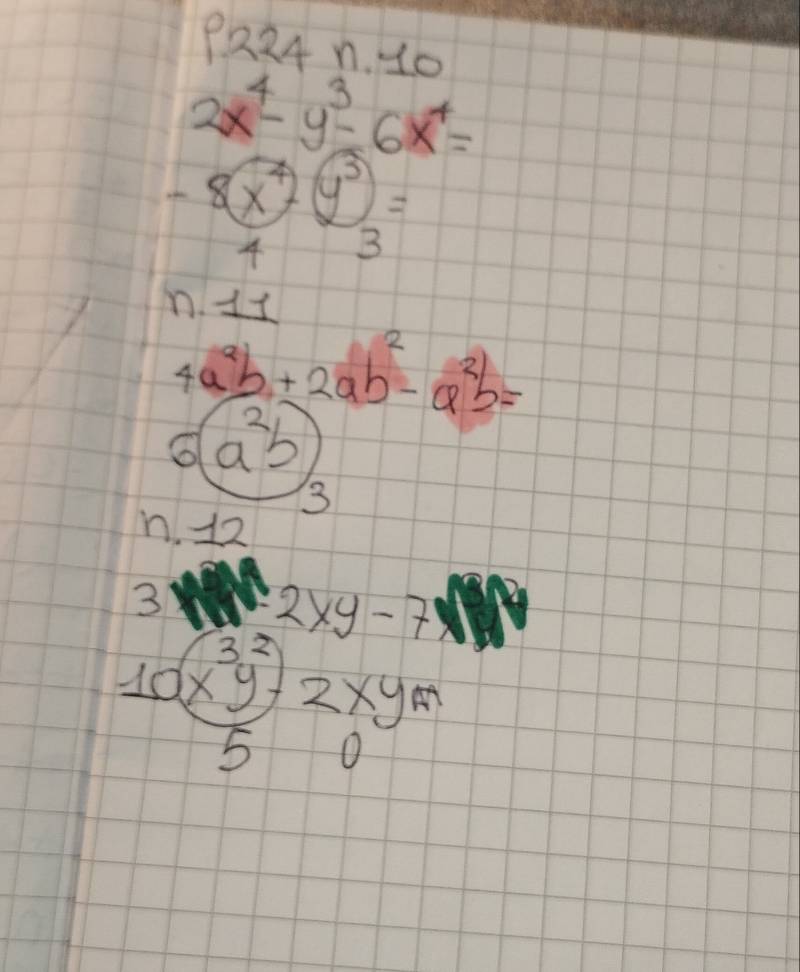 P224 n.10
2x⁴ - y³ - 6x⁴ =
- 8x⁴ - y³ =
4 3
n.11
4a²b + 2ab² - a²b =
6a²b
3
n.12
3 - 2xy - 7
10x³y² - 2xy
5 0